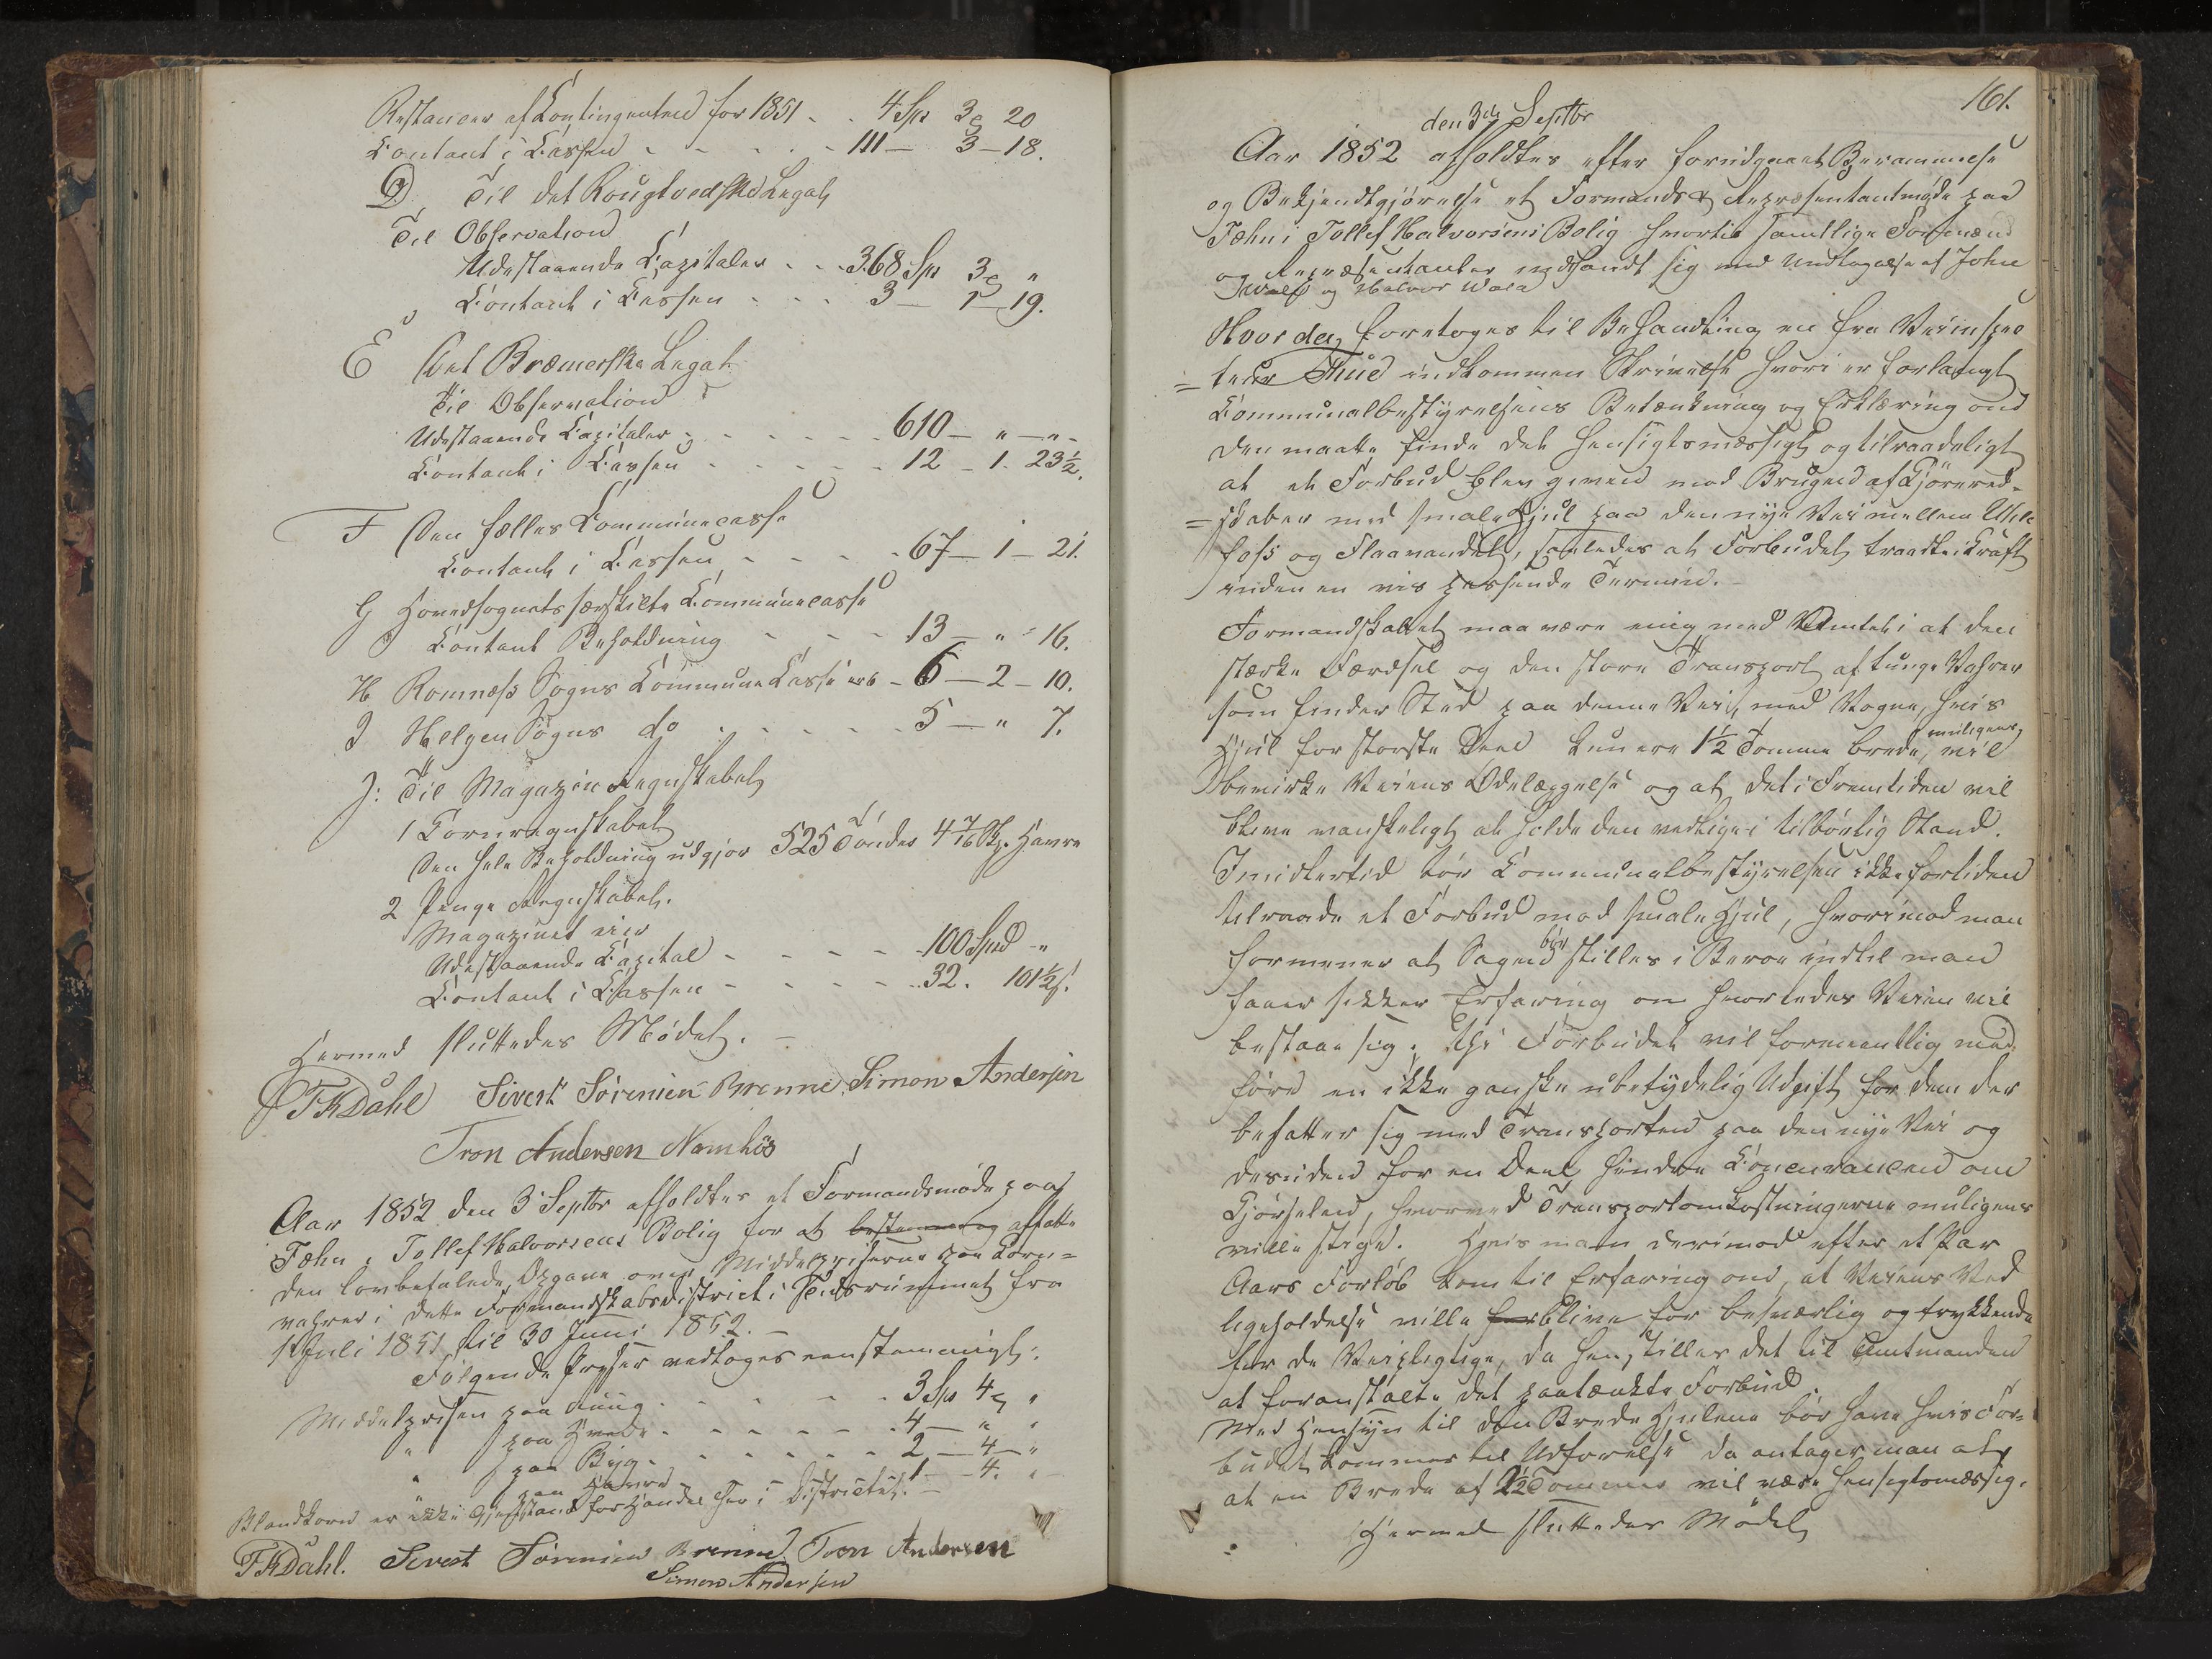 Restancer af Contingenten for 1851 . . 4 Spd 3 ₰ 20
Contant i Cassen - - - - - 111 — 3 — 18.
D, Til det Rougtvedtske Legat
Til Observation
Udestaaende Capitaler . . . 368 Spd 3 ₰ "
Contant i Cassen - - - 3 — 1 — 19.
E Det Bræmerske Legat
Til Observation
Udestaaende Capitaler - - - - - - 610 — " — " -
Contant i Cassen - - - - - 12 - 1. 23½.
F Den fælles Communecasse
Contant i Cassen - - - - 67 — 1 — 21.
G Hovedsognets særskilte Communecasse
Contant Beholdning - - - 13 — " - 16.
H Romnæss Sogns Commune Casse - 6 — 2 — 10.
I Helgen Sogns do - - - - - 5 — " 7.
J: Til Magazin Regnskabet
1 Cornregnskabet
Den hele Beholdning udgjør 525 Tønder 4 7/16 Skp. Havre
2 Penge Regnskabet.
Magazinet eier
Udestaaende Capital - - - - 100 Spd - "
Contant i Cassen - - - - 32. 101½ s.
Hermed sluttedes Mødet. —
FHDahl Sivert Sörensen Brenne. Simon Andersen
Tron Andersen Namløs
Aar 1852 den 3 Septbr afholdtes et Formandsmøde paa
Fæhn i Tollef Halvorsens Bolig for at bestemme og affatte
den lovbefalede Opgave over Middelpriserne paa Korn=
vahrer i dette Formandskabsdistrict i Tidsrummet fra
1 Juli 1851 til 30 Juni 1852. —
Følgende Priser vedtoges eenstemmigt:
Middelprisen paa Rüug . - - - - 3 Spd 4 ₰ "
" paa Hvede . - - - - - 4 — " "
" paa Byg . - - - - - - 2 — 4 — "
" paa Havre - - - - - 1 - - 4. "
Blandkorn er ikke Gjenstand for Handel her i Districtet. —
FHDahl. Sivert Sörensen Brenne. Tron Andersen
Simon Andersen
161.
den 3die Septbr
Aar 1852 afholdtes efter forudgaaet Berammelse
og Bekjendtgjørelse et Formands & Repræsentantmøde paa
Fæhn i Tollef Halvorsens Bolig hvortil samtlige Formænd
og Repræsentanter indfandt sig med Undtagelse af John
og Halvor Vala
Hvor da foretoges til Behandling en fra Veiinspec
= teur Thue indkommen Skrivelse hvori er forlangt
Communalbestyrelsens Betænkning og Erklæring om
den maatte finde det hensigtsmæssigt og tilraadeligt
at et Forbud blev given mod Brugen af Kjørered-
= skaber med smale Hjul paa den nye Vei mellem Ule
foss og Flaavandet, saaledes at Forbudet traadte i Kraft
inden en vis passende Termin. -
Formandskabet maa være enig med Amtet i at den
stærke Færdsel og den store Transport af tunge Vahrer
som finder Sted paa denne Vei, med Vogne, hvis
Hjul for største Deel kun ere 1½ Tomme brede, muligens vil
bevirke Veiens Ødelæggelse og at det i Fremtiden vil
blive vanskeligt at holde den vedlige i tilbørlig Stand.
Imidlertid tør Communalbestyrelsen ikke for tiden
tilraade et Forbud mod smale Hjul, hvorimod man
formener at Sagen bør stilles i Beroe indtil man
faaer sikker Erfaring om hvorledes Veien vil
bestaae sig; thi Forbudet vil formeentlig med
føre en ikke ganske ubetydelig Udgift for dem der
befatter sig med Transporten paa den nye Vei og
desuden for en Deel hindre Concurancen om
Kjørselen, hvorved Transportomkostningerne muligens
ville stige. Hvis man derimod efter et Par
Aars Forløb kom til Erfaring om, at Veiens Ved
ligeholdelse ville for blive for besværlig og trykkende
for de Veipligtige, da henstilles det til Amtmanden
at foranstalte det paatænkte Forbud.
Med Hensyn til den Brede Hjulene bør have hvis For=
budet kommer til Udførelse da antager man at
at en Brede af 2½ Tommer vil være hensigtsmæssig.
Hermed sluttedes Mødet